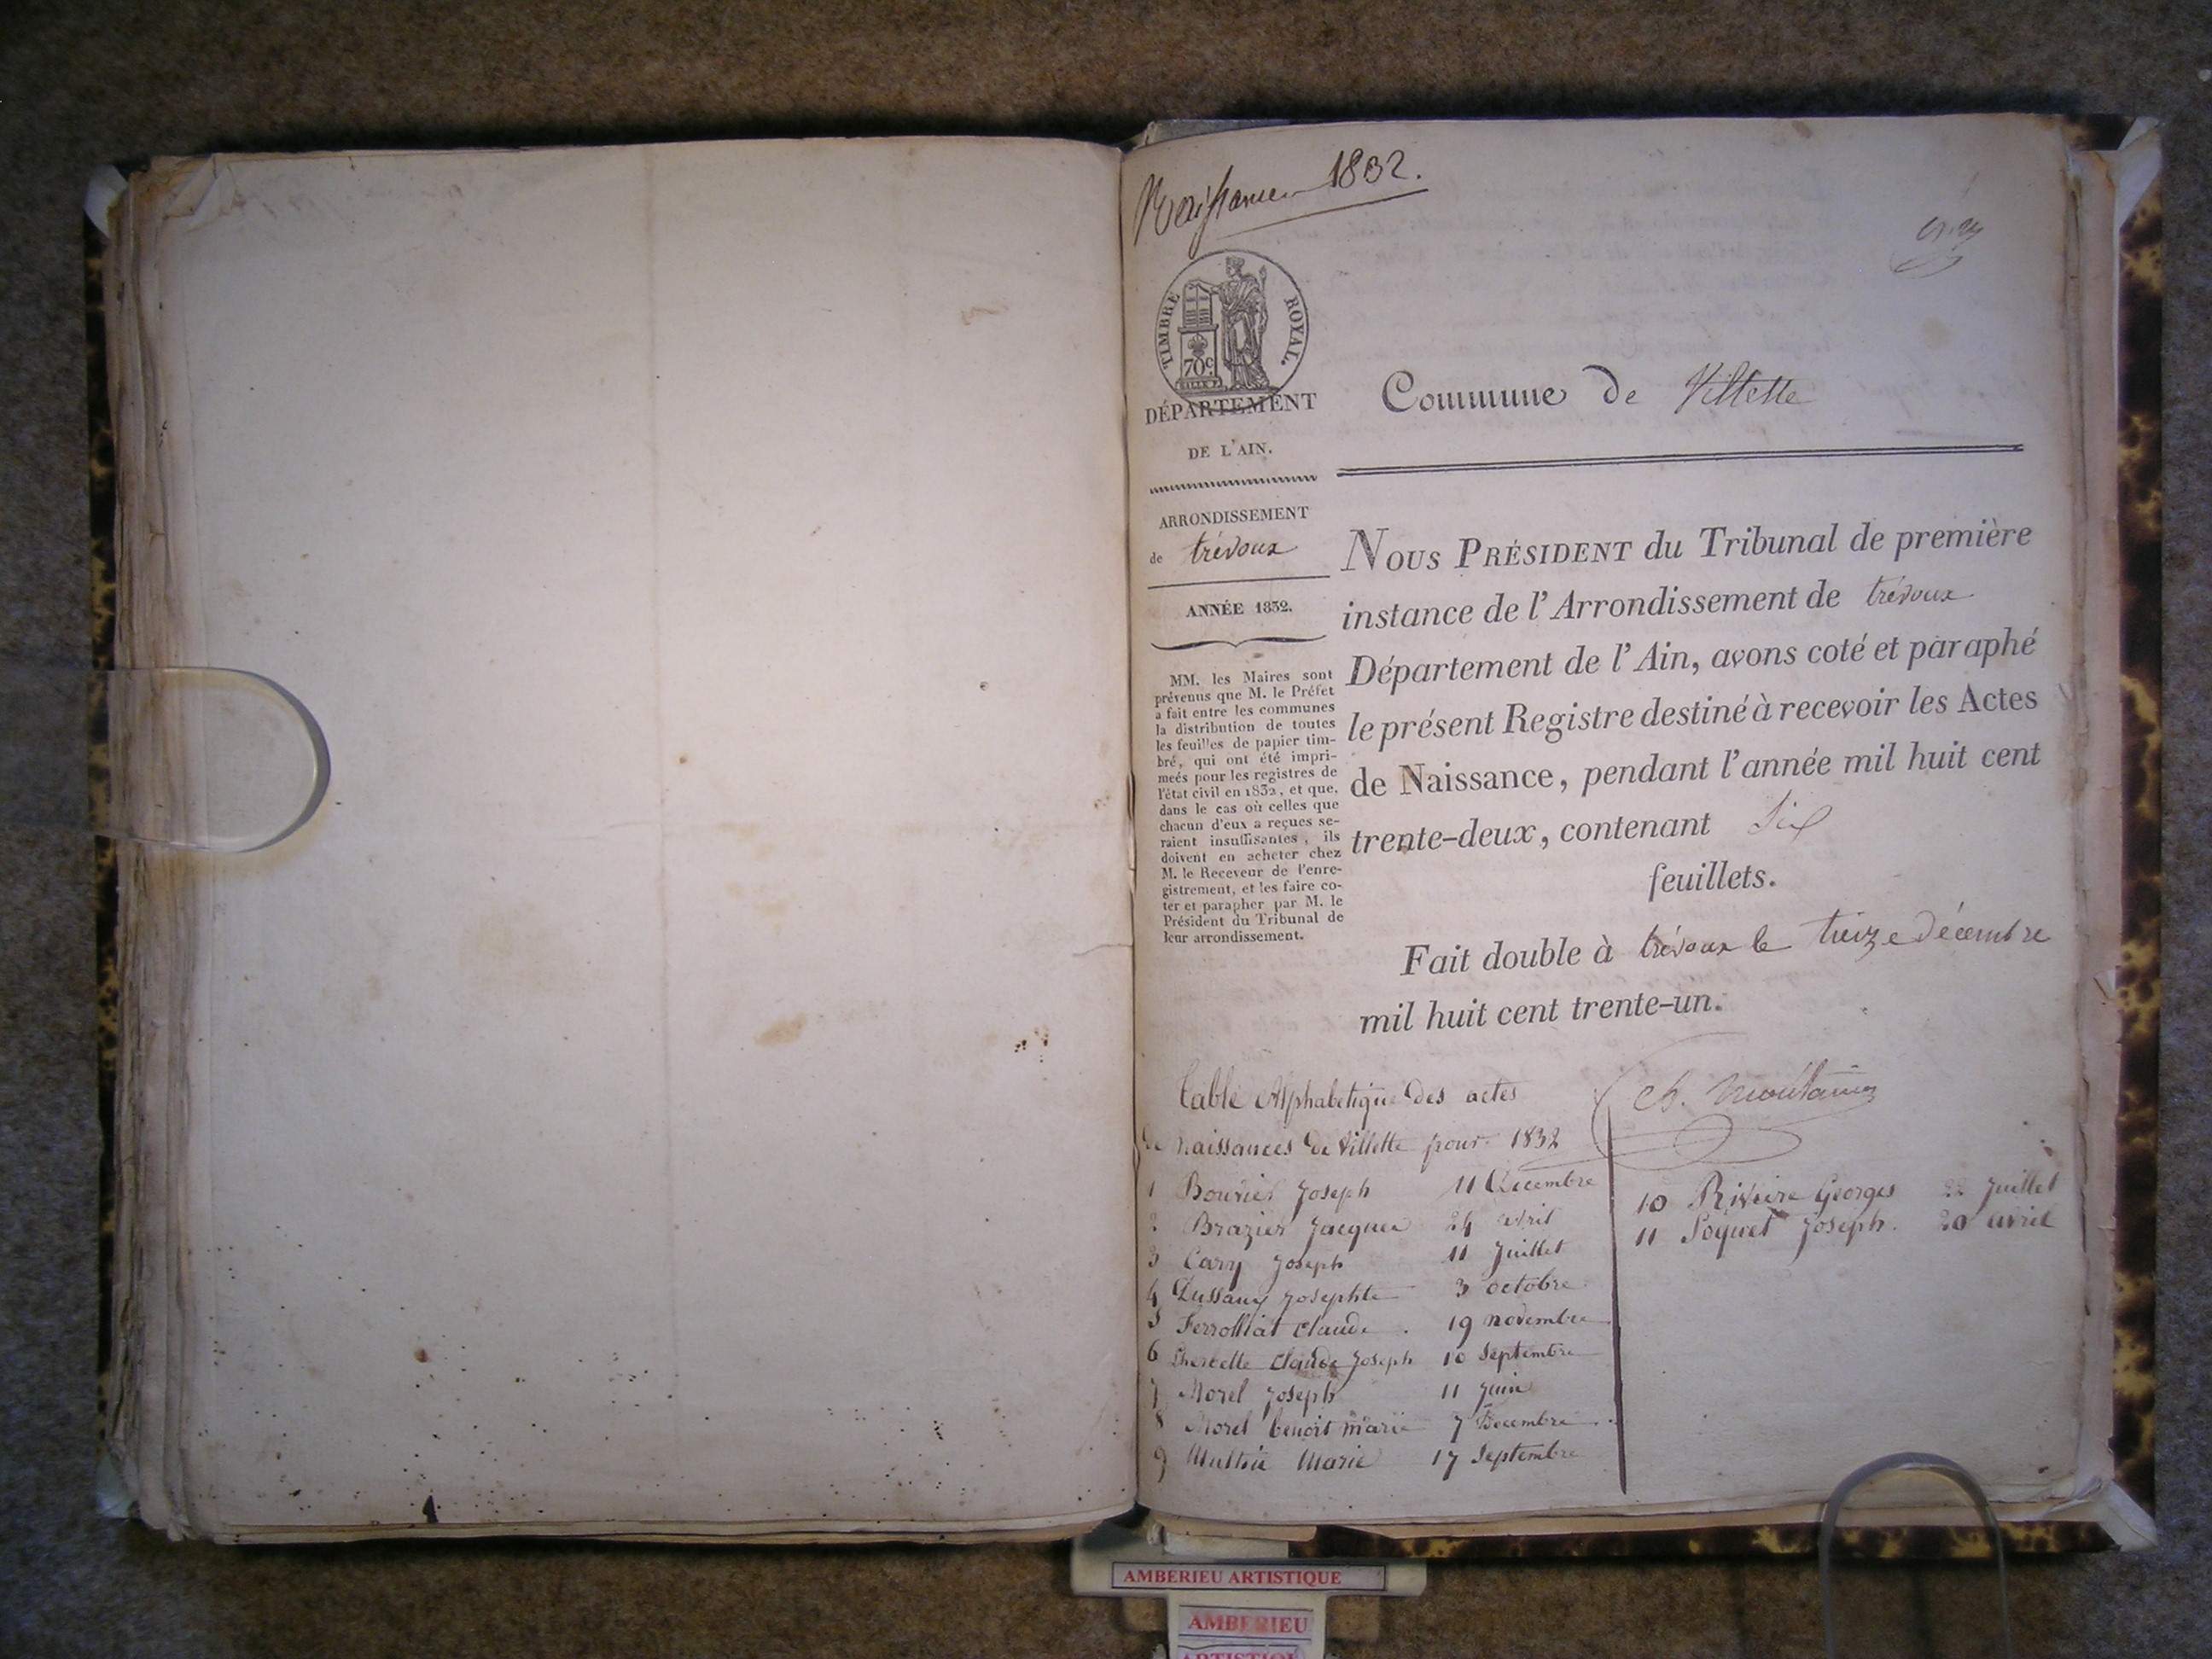 Naissances 1832.
TIMBRE ROYAL.
70c
DÉPARTEMENT
DE L'AIN.
ARRONDISSEMENT
de trévoux
ANNÉE 1832.
MM. les Maires sont
prévenus que M. le Préfet
a fait entre les communes
la distribution de toutes
les feuilles de papier tim-
bré, qui ont été impri-
meés pour les registres de
l'état civil en 1832, et que,
dans le cas où celles que
chacun d'eux a reçues se-
raient insuffisantes, ils
doivent en acheter chez
M. le Receveur de l'enre-
gistrement, et les faire co-
ter et parapher par M. le
Président du Tribunal de
leur arrondissement.
Commune de Villette
NOUS PRÉSIDENT du Tribunal de première
instance de l'Arrondissement de trévoux
Département de l'Ain, avons coté et paraphé
le présent Registre destiné à recevoir les Actes
de Naissance, pendant l'année mil huit cent
trente-deux, contenant Six
feuillets.
Fait double à trévoux le treize décembre
mil huit cent trente-un.
Table Alphabetique Des actes
de naissances de Villette pour 1832
1 Bouvier Joseph 11 Decembre
2 Brazier Jacques 24 avril
3 Cary Joseph 11 Juillet
4 Josephte 3 octobre
5 Ferrolliat Claude. 19 novembre
6 Claude Joseph 10 Septembre
7 Morel Joseph 11 Juin
8 Morel benoit marie 7 Decembre
9 Marie 17 Septembre
10 Riviire Georges 22 Juillet
11 Soquet Joseph. 20 avril
AMBERIEU ARTISTIQUE
AMBERIEU
ARTISTIQUE